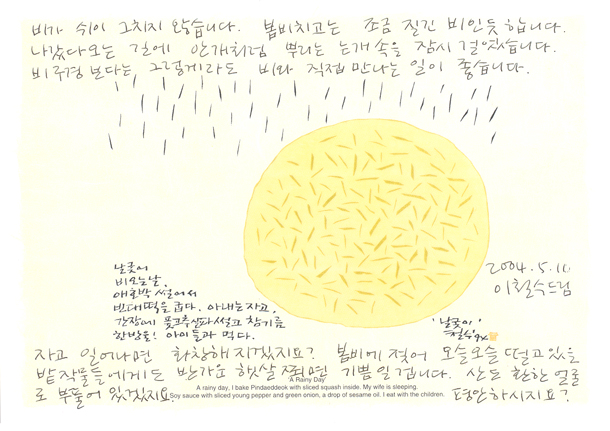 비가 쉬이 그치지 않습니다. 봄비치고는 조금 질긴 비인듯 합니다.
나갔다오는 길에 안개처럼 뿌리는 는개 속을 잠시 걸었습니다.
비 구경 보다는, 그렇게라도 비와 직접 만나는 일이 좋습니다.
날궂이
비오는날,
애호박 썰어서
빈대떡을 굽다. 아내는 자고,
간장에 풋고추 실파 썰고 참기름
한방울! 아이들과 먹다.
2004.5.10
이철수드림
'날궂이'
철수 94
자고 일어나면 화창해지겠지요? 봄비에 젖어 오슬오슬 떨고 있을
밭 작물들에게도 반가운 햇살 쬐면 기쁨일겁니다. 산도 환한 얼굴
'A Rainy Day'
A rainy day, I bake Pindaeddeok with sliced squash inside. My wife is sleeping.
로 부풀어 있겠지요. 평안하시지요?
Soy sauce with sliced young pepper and green onion, a drop of sesame oil. I eat with the children.